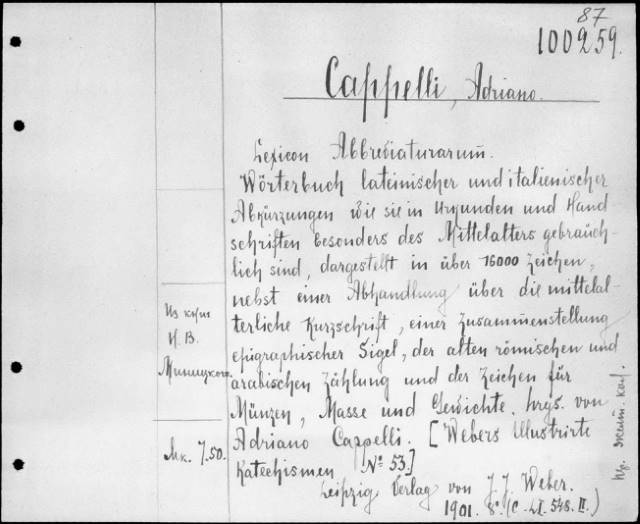 87
100259.
Cappelli, Adriano.
Lexicon Abbreviaturarum.
Wörterbuch lateinischer und italienischer
Abkürzungen wie sie in Urkunden und Hand
schriften besonders des Mittelalters gebräuch-
lich sind, dargestellt in über 16000 Zeichen,
nebst einer Abhandlung über die mittelal-
terliche Kurzschrift, einer Zusammenstellung
epigraphischer Sigel, der alten römischen und
arabischen Zählung und der Zeichen für
Münzen, Masse und Gewichte. hrgs. von
Adriano Cappelli. [Webers Illustrirte
Katechismen № 53.]
Leipzig Verlag von J. J. Weber.
1901. 8°. (C-LI. 548. II.)
Из книг
И. В.
Мк. 7.50.